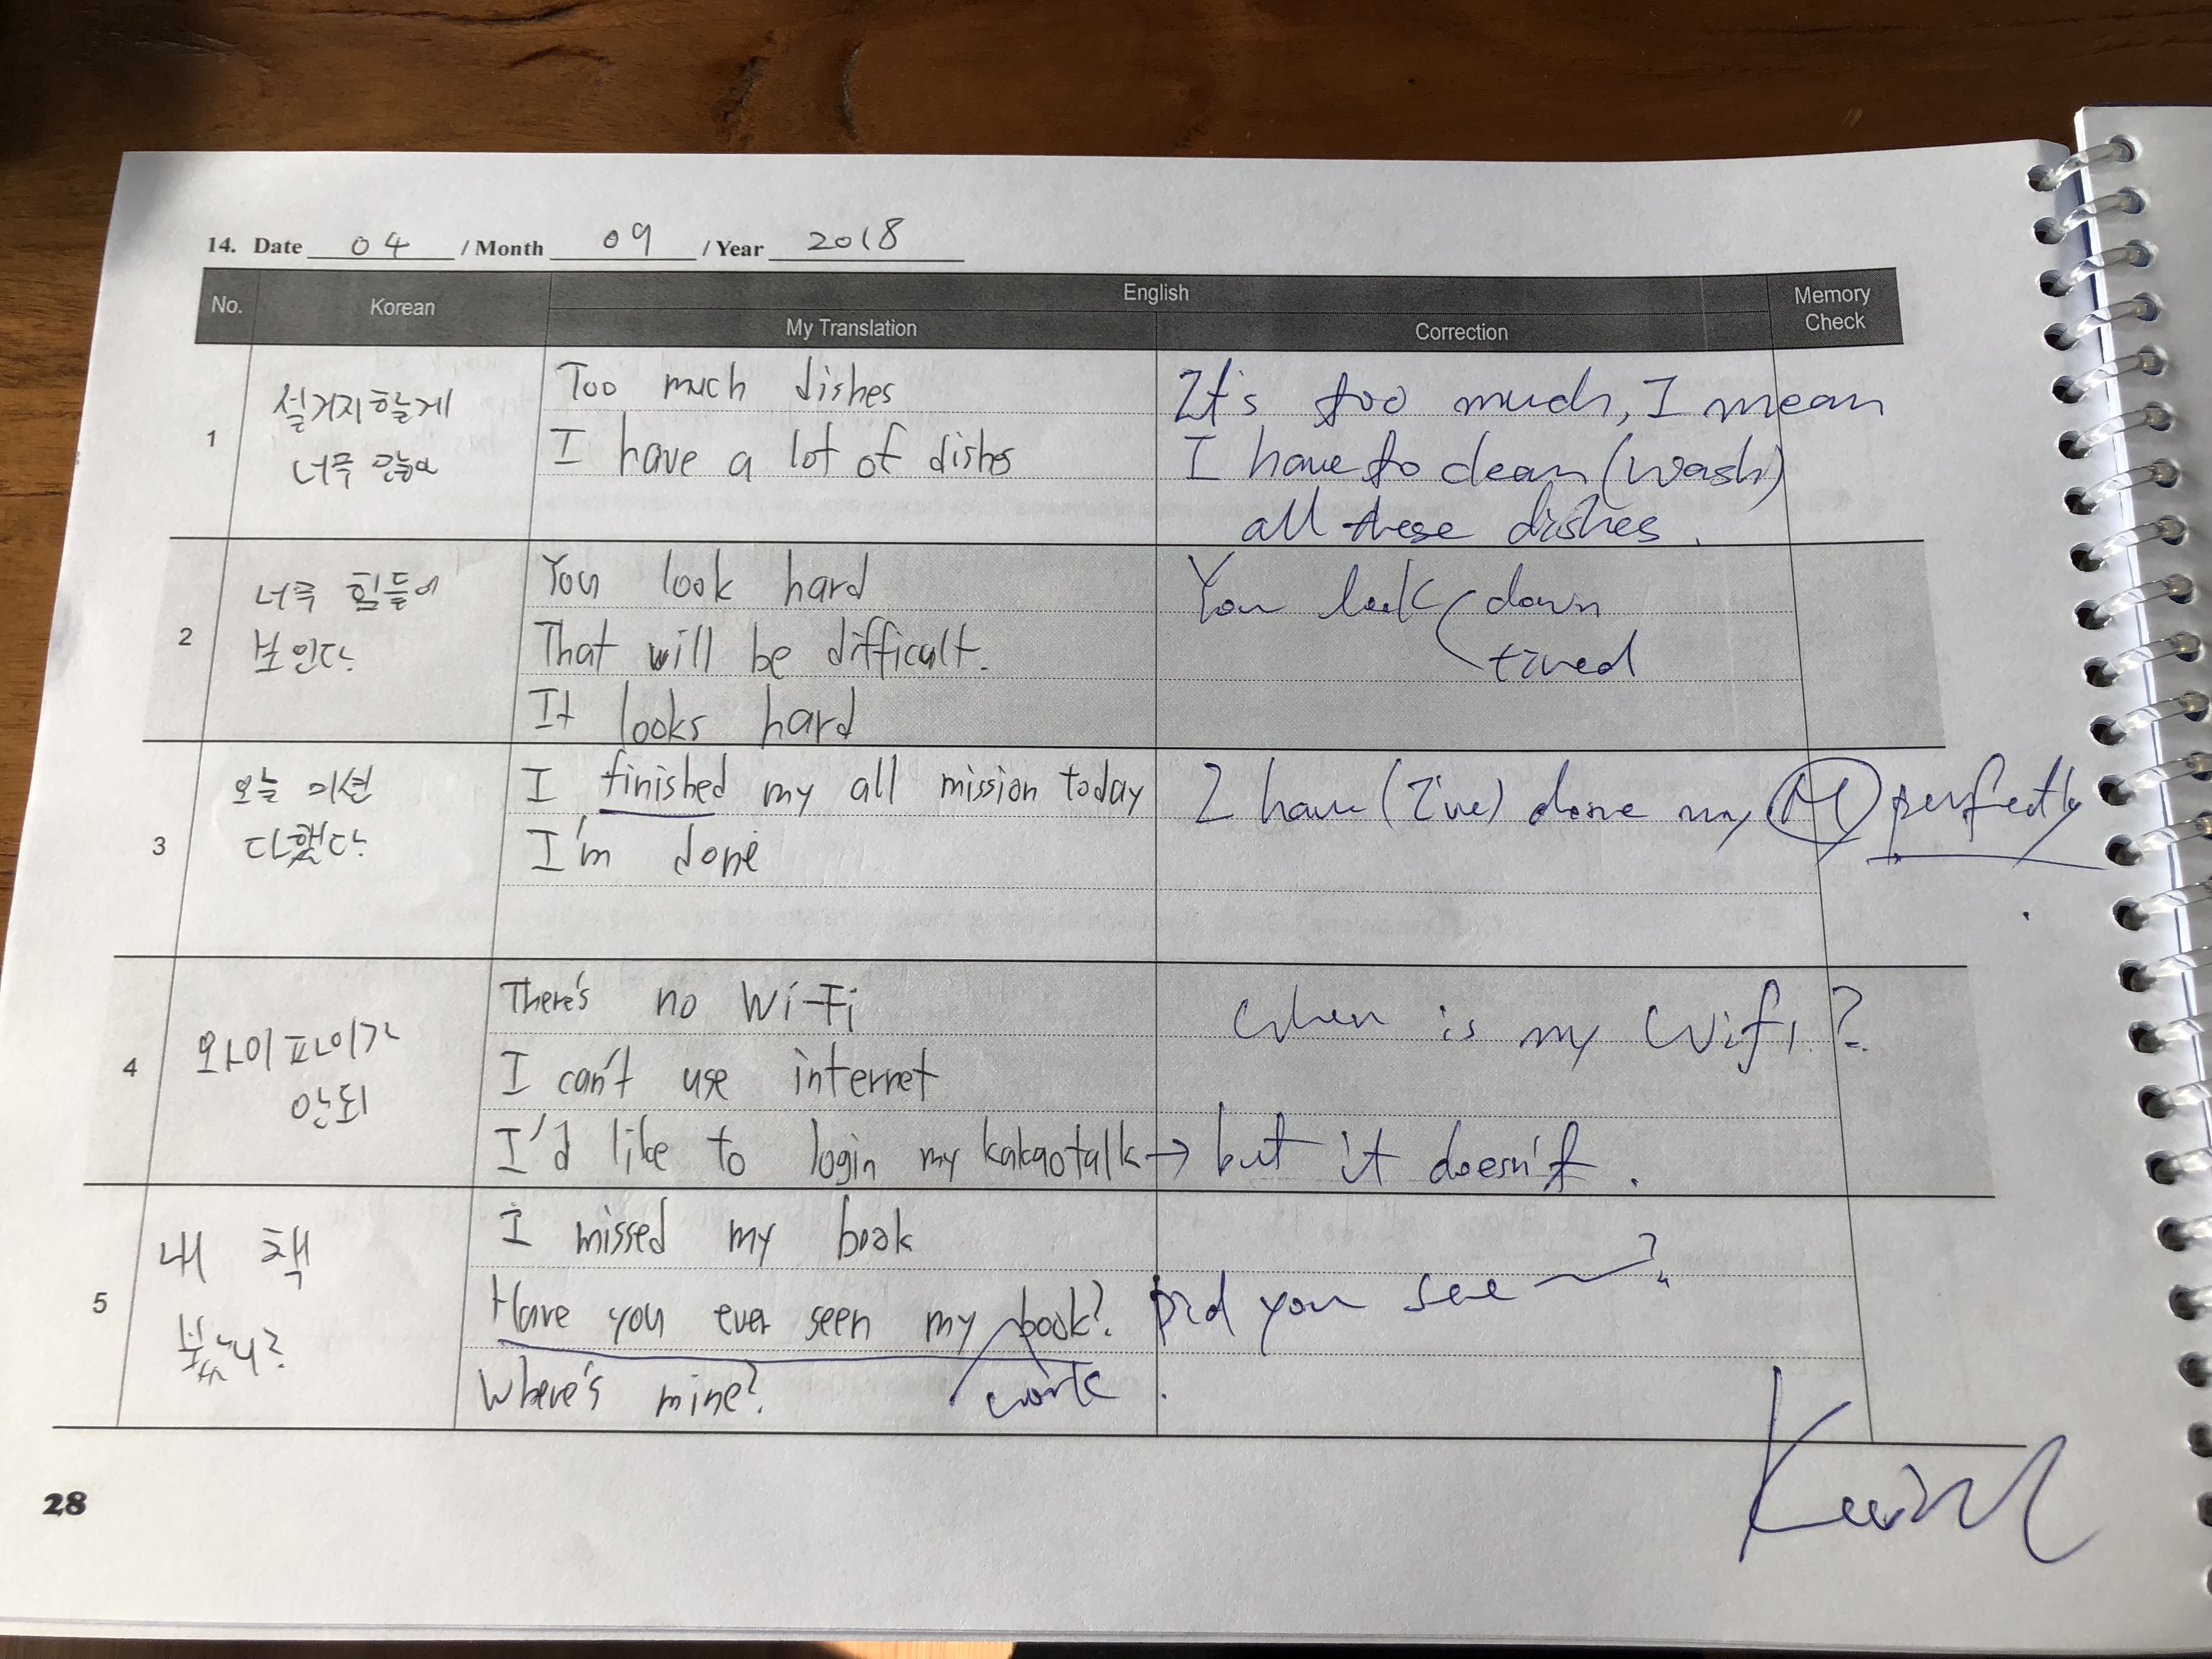 14. Date 04 / Month 09 / Year 2018
No. Korean English Memory Check
My Translation Correction
1
설거지할게
너무 많아
Too much dishes
I have a lot of dishes
It's too much, I mean
I have to clean (wash)
all these dishes.
2
너무 힘들어
보인다.
You look hard
That will be difficult.
It looks hard
You look down
tired
3
오늘 미션
다했다.
I finished my all mission today
I'm done
I have (I've) done my M perfectly
4
와이파이가
안되
There's no Wi-Fi
I can't use internet
I'd like to login my kakaotalk →
When is my Wifi?
but it doesn't.
5
내 책
봤니?
I missed my book
Have you ever seen my book?
Where's mine?
work
Did you see ~?
28